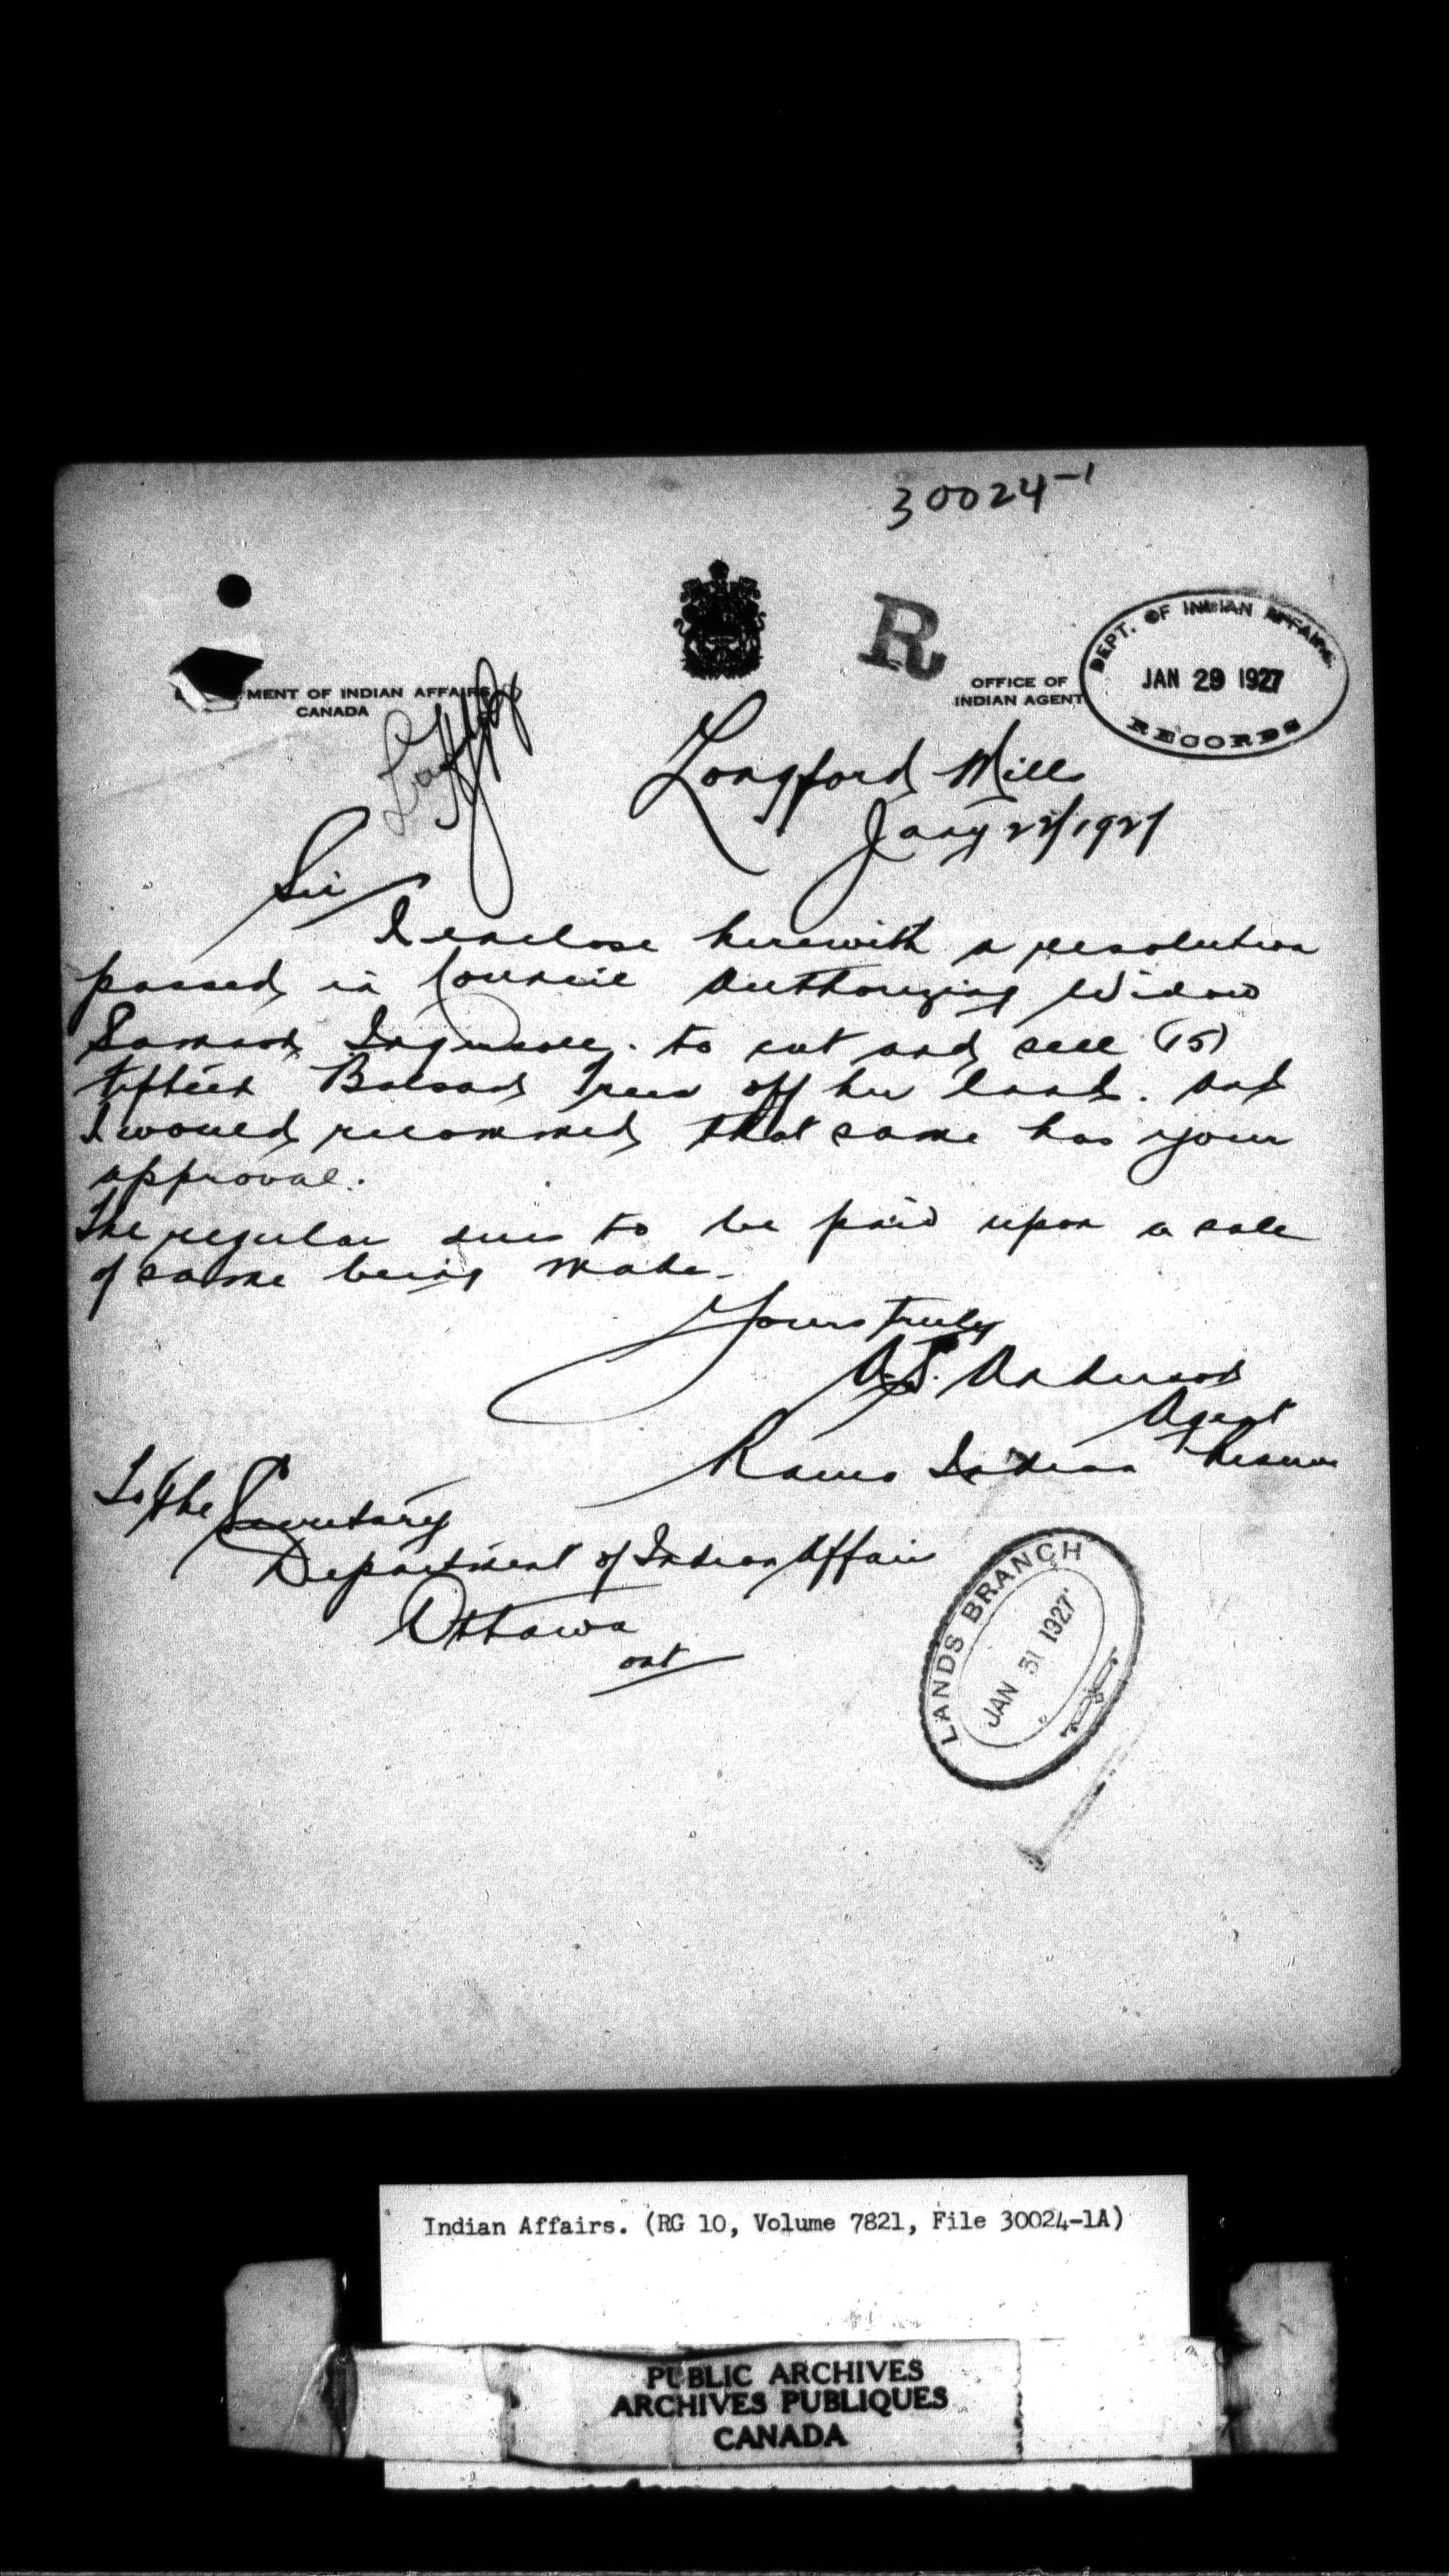 30024-1
R
DEPT. OF INDIAN AFFAIRS.
JAN 29 1927
RECORDS
MENT OF INDIAN AFFAIRS
CANADA
OFFICE OF
INDIAN AGENT
Longford Mills
Jany 22/1927
Sir
I enclose herewith a resolution
passed in Council Authorizing Widow
Samson Ingersoll. to cut and sell (15)
fifteen Balsam Trees off her land. and
I would recommed that same has your
approval.
The regular dues to be paid upon a sale
of same being made.
Yours truly
A.S. Anderson
Agent
Rama Indian Reserve
To the Secretary
Department of Indian Affairs
Ottawa
ont
LANDS BRANCH
JAN 31 1927
Indian Affairs. (RG 10, Volume 7821, File 30024-1A)
PUBLIC ARCHIVES
ARCHIVES PUBLIQUES
CANADA